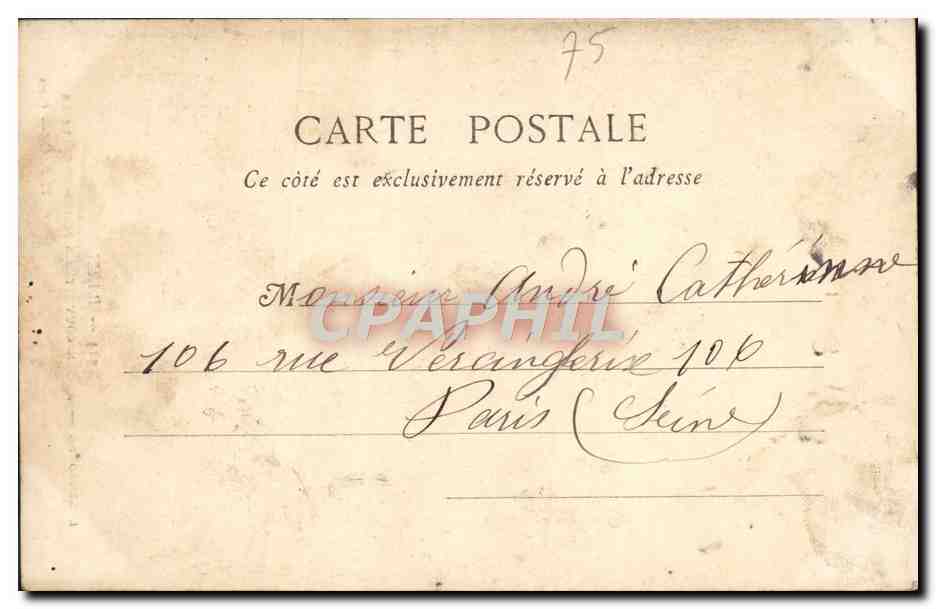 75
CARTE POSTALE
Ce côté est exclusivement réservé à l'adresse
Monsieur André Cathérinne
CPAPHIL
106 rue 106
Paris (Séine)